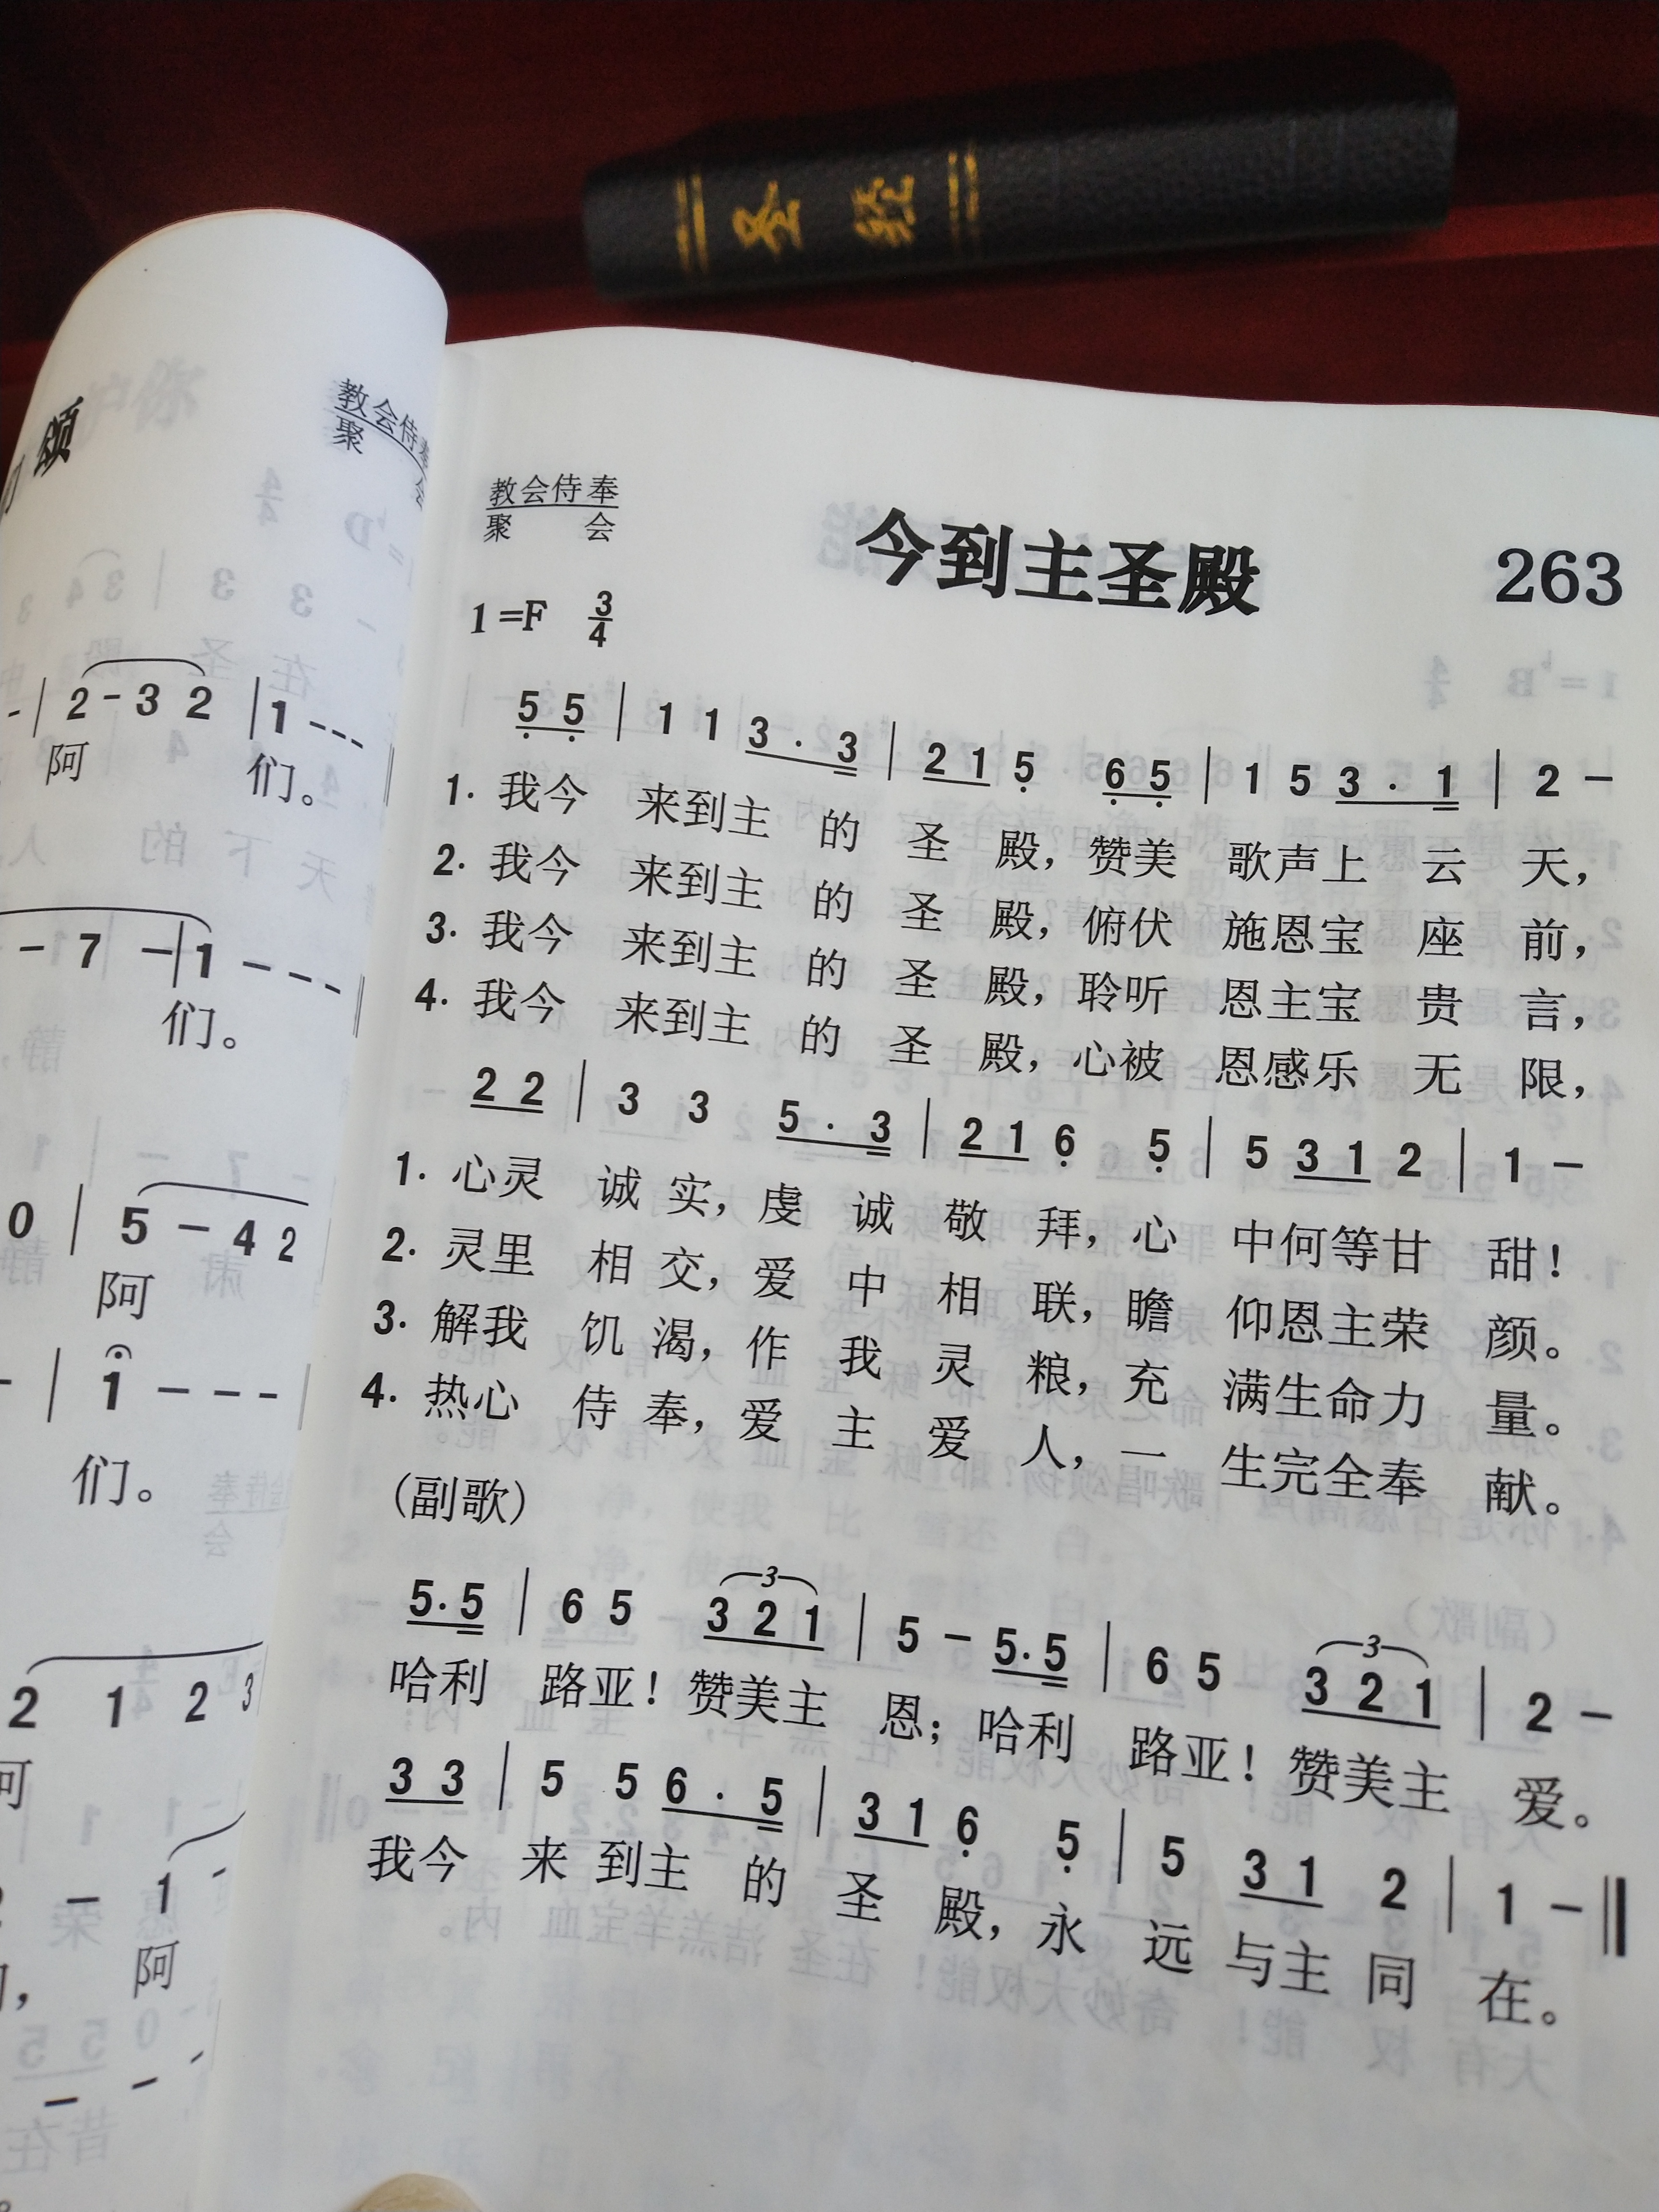 圣经
颂
教会侍奉
聚会
2 - 3 2 | 1 - - -
阿 们。
- 7 - | 1 - - - -
们。
0 | 5 - 4 2
阿
- | 1 - - -
们。
2 1 2 3
阿
- 1 -
阿
教会侍奉
聚会
今到主圣殿 263
1=F 3/4
5 5 | 1 1 3 · 3 | 2 1 5 6 5 | 1 5 3 · 1 | 2 -
1. 我今 来到主 的 圣 殿，赞美 歌声上 云 天，
2. 我今 来到主 的 圣 殿，俯伏 施恩宝 座 前，
3. 我今 来到主 的 圣 殿，聆听 恩主宝 贵 言，
4. 我今 来到主 的 圣 殿，心被 恩感乐 无 限，
2 2 | 3 3 5 · 3 | 2 1 6 5 | 5 3 1 2 | 1 -
1. 心灵 诚 实，虔 诚 敬 拜，心 中何等甘 甜！
2. 灵里 相 交，爱 中 相 联，瞻 仰恩主荣 颜。
3. 解我 饥 渴，作 我 灵 粮，充 满生命力 量。
4. 热心 侍 奉，爱 主 爱 人，一 生完全奉 献。
(副歌)
5·5 | 6 5 3 2 1 | 5 - 5·5 | 6 5 3 2 1 | 2 -
哈利 路亚！赞美主 恩；哈利 路亚！赞美主 爱。
3 3 | 5 5 6 · 5 | 3 1 6 5 | 5 3 1 2 | 1 - ‖
我今 来 到主 的 圣 殿，永 远 与主 同 在。